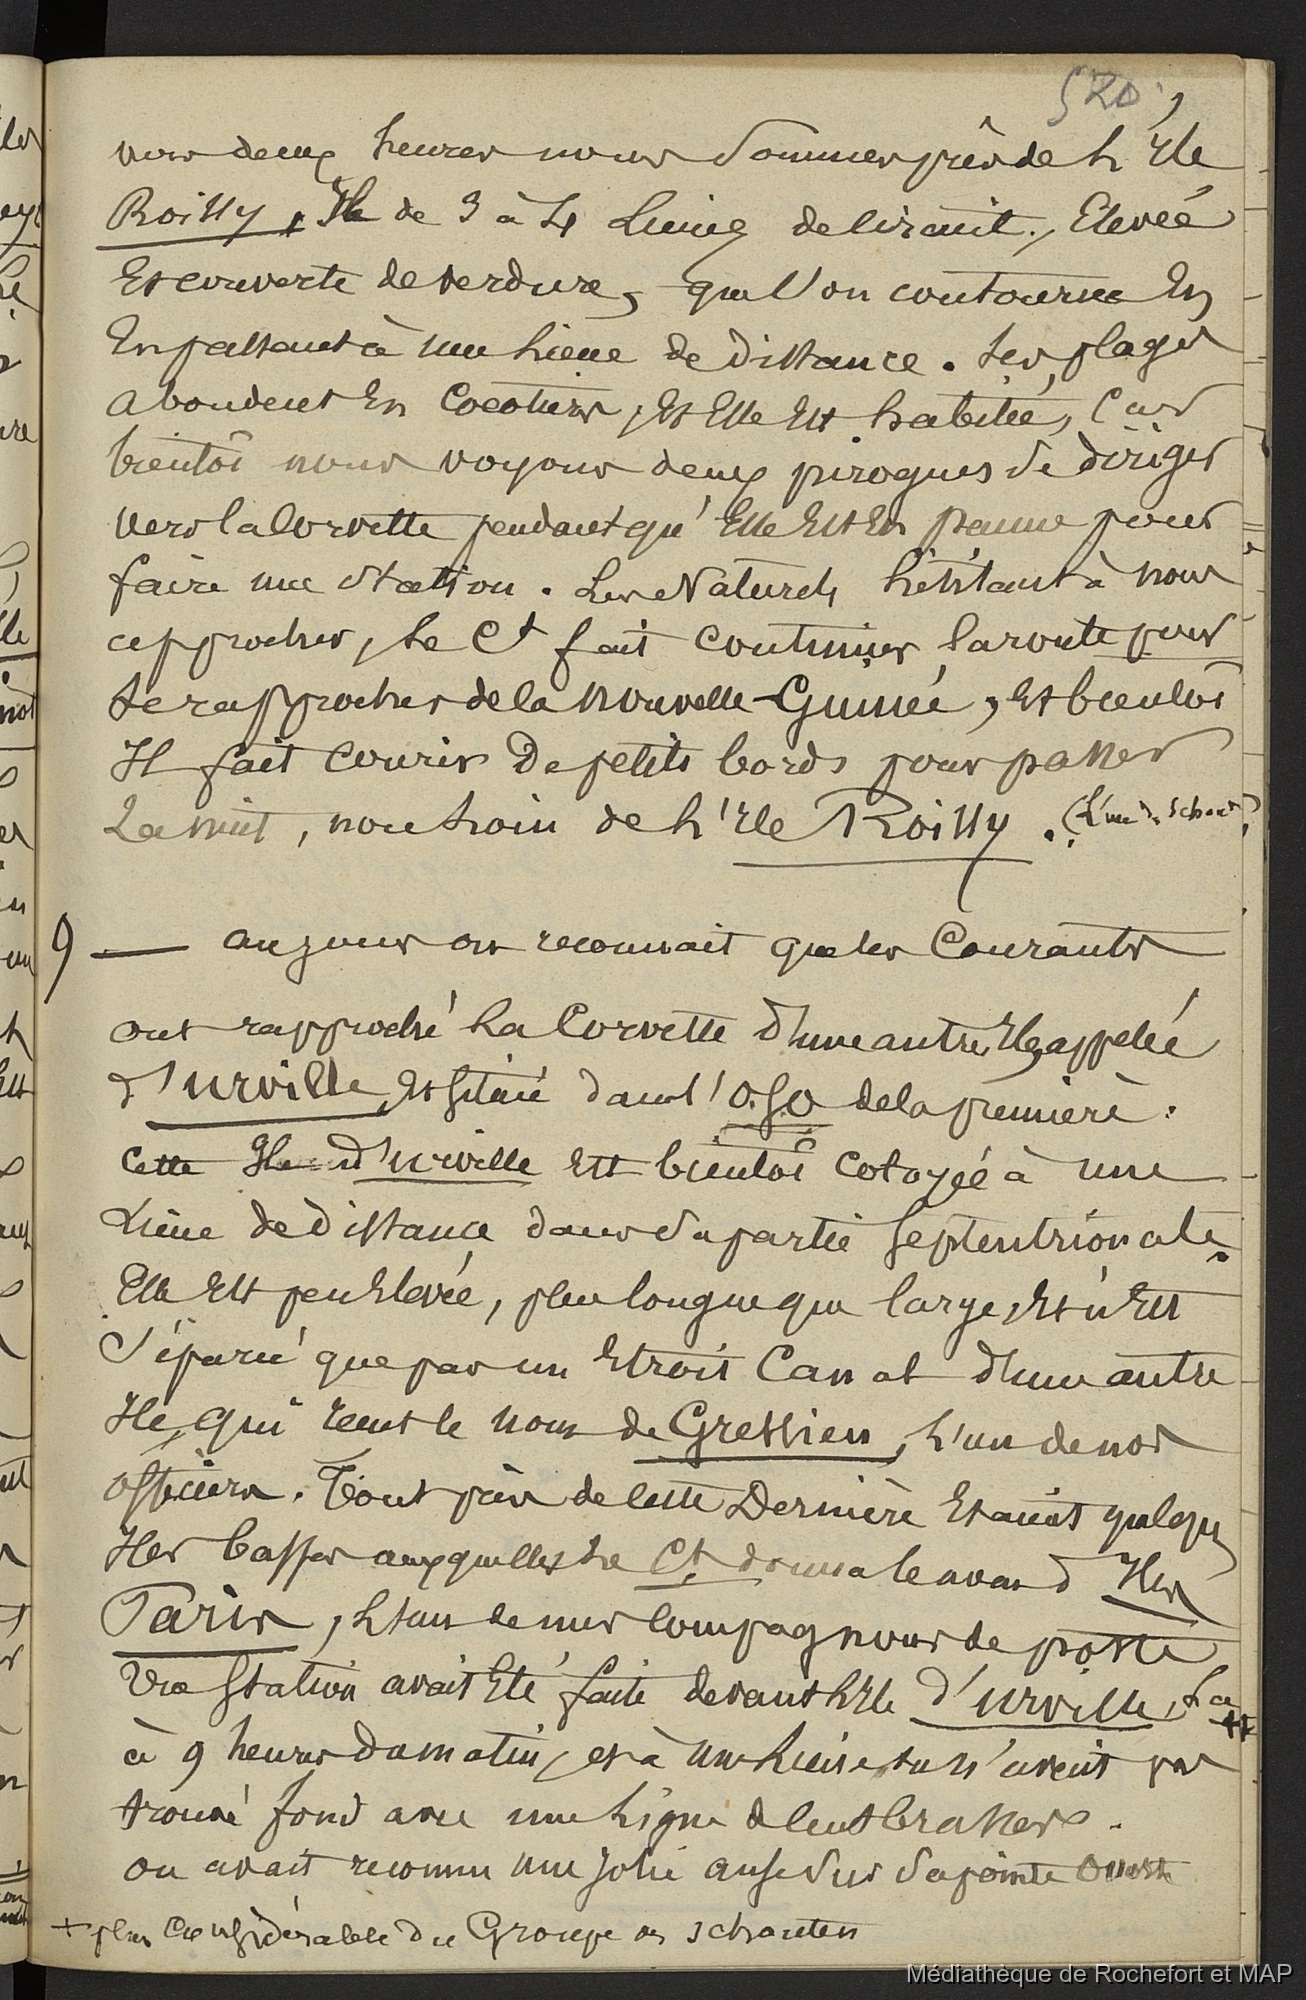 520
vers deux heures nous sommes près de l'Ile
Roissy, Ile de 3 à 4 Lieues de circuit, Elevée
Et couverte de verdure, que l'on contourne En
En passant à une Lieue de distance. ses plages
abondent En Cocotiers, Et Elle Est habitée, Car
bientôt nous voyons deux pirogues se diriger
vers la Corvette pendant qu'Elle Est En panne pour
faire une Station. Les Naturels hésitant à nous
approcher, Le Ct fait continuer la route pour
se rapprocher de la Nouvelle-Guinée, Et bientôt
Il fait courir De petits bords pour passer
La nuit, non Loin de l'Ile Roissy. (L'une des Schout)
9 — au jour on reconnait que les Courants
ont rapproché La Corvette d'une autre Ile, appelée
d'Urville, Et Située dans l'O.S.O de la première.
Cette Ile d'Urville Est bientôt cotoyée à une
Lieue de distance dans sa partie Septentrionale.
Elle Est peu Elevée, plus longue que large, Et n'Est
Séparée que par un Etroit Canal d'une autre
Ile, qui reçut le nom de Gressien, L'un de nos
officiers. Tout près de Cette Dernière Etaient quelques
Iles basses auxquelles Le Ct donna le nom d'Iles
Paris, L'un de mes Compagnons de poste
Une Station avait Eté faite devant L'Ile d'Urville, La +
à 9 heures du matin, et à une Lieue on n'avait pas
trouvé fond avec une Ligne de Cent brasses.
on avait reconnu une jolie anse sur sa pointe Ouest
+ plus Considérable du Groupe des Schouten
Médiathèque de Rochefort et MAP